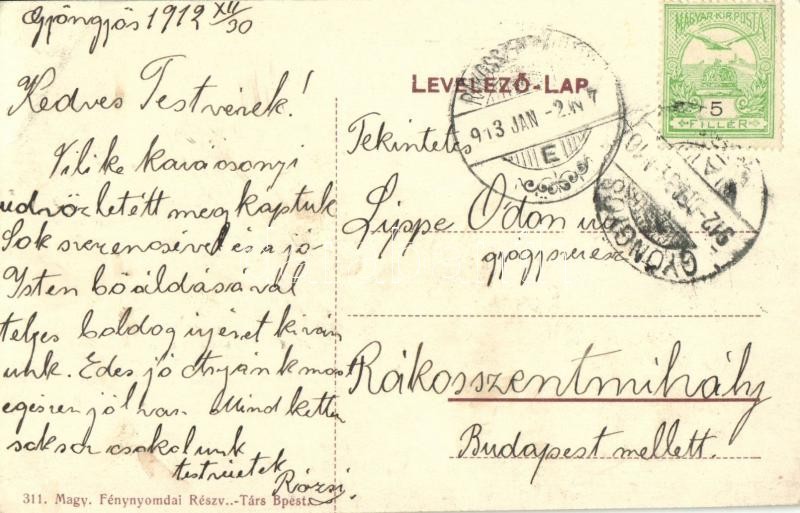 Gyöngyös 1912 XII/30
Kedves Testvérek!
Vilike karácsonyi
üdvözletétt megkaptuk
Sok szerencsével és a jó
Isten bőáldásával
teljes boldog ujévet kíván
unk. Édes jó Atyánk most
egészen jól van. Mind ketten
sokszor csokolunk
testvéretek
Rózsi
311. Magy. Fénynyomdai Részv.-Társ Bpest.
LEVELEZŐ-LAP
Tekintetes
Lippe Ödön ur
gyógyszerész
Rákosszentmihály
Budapest mellett.
MAGYAR·KIR·POSTA
5
FILLÉR
913 JAN -2
E
GYÖNGYÖS
912